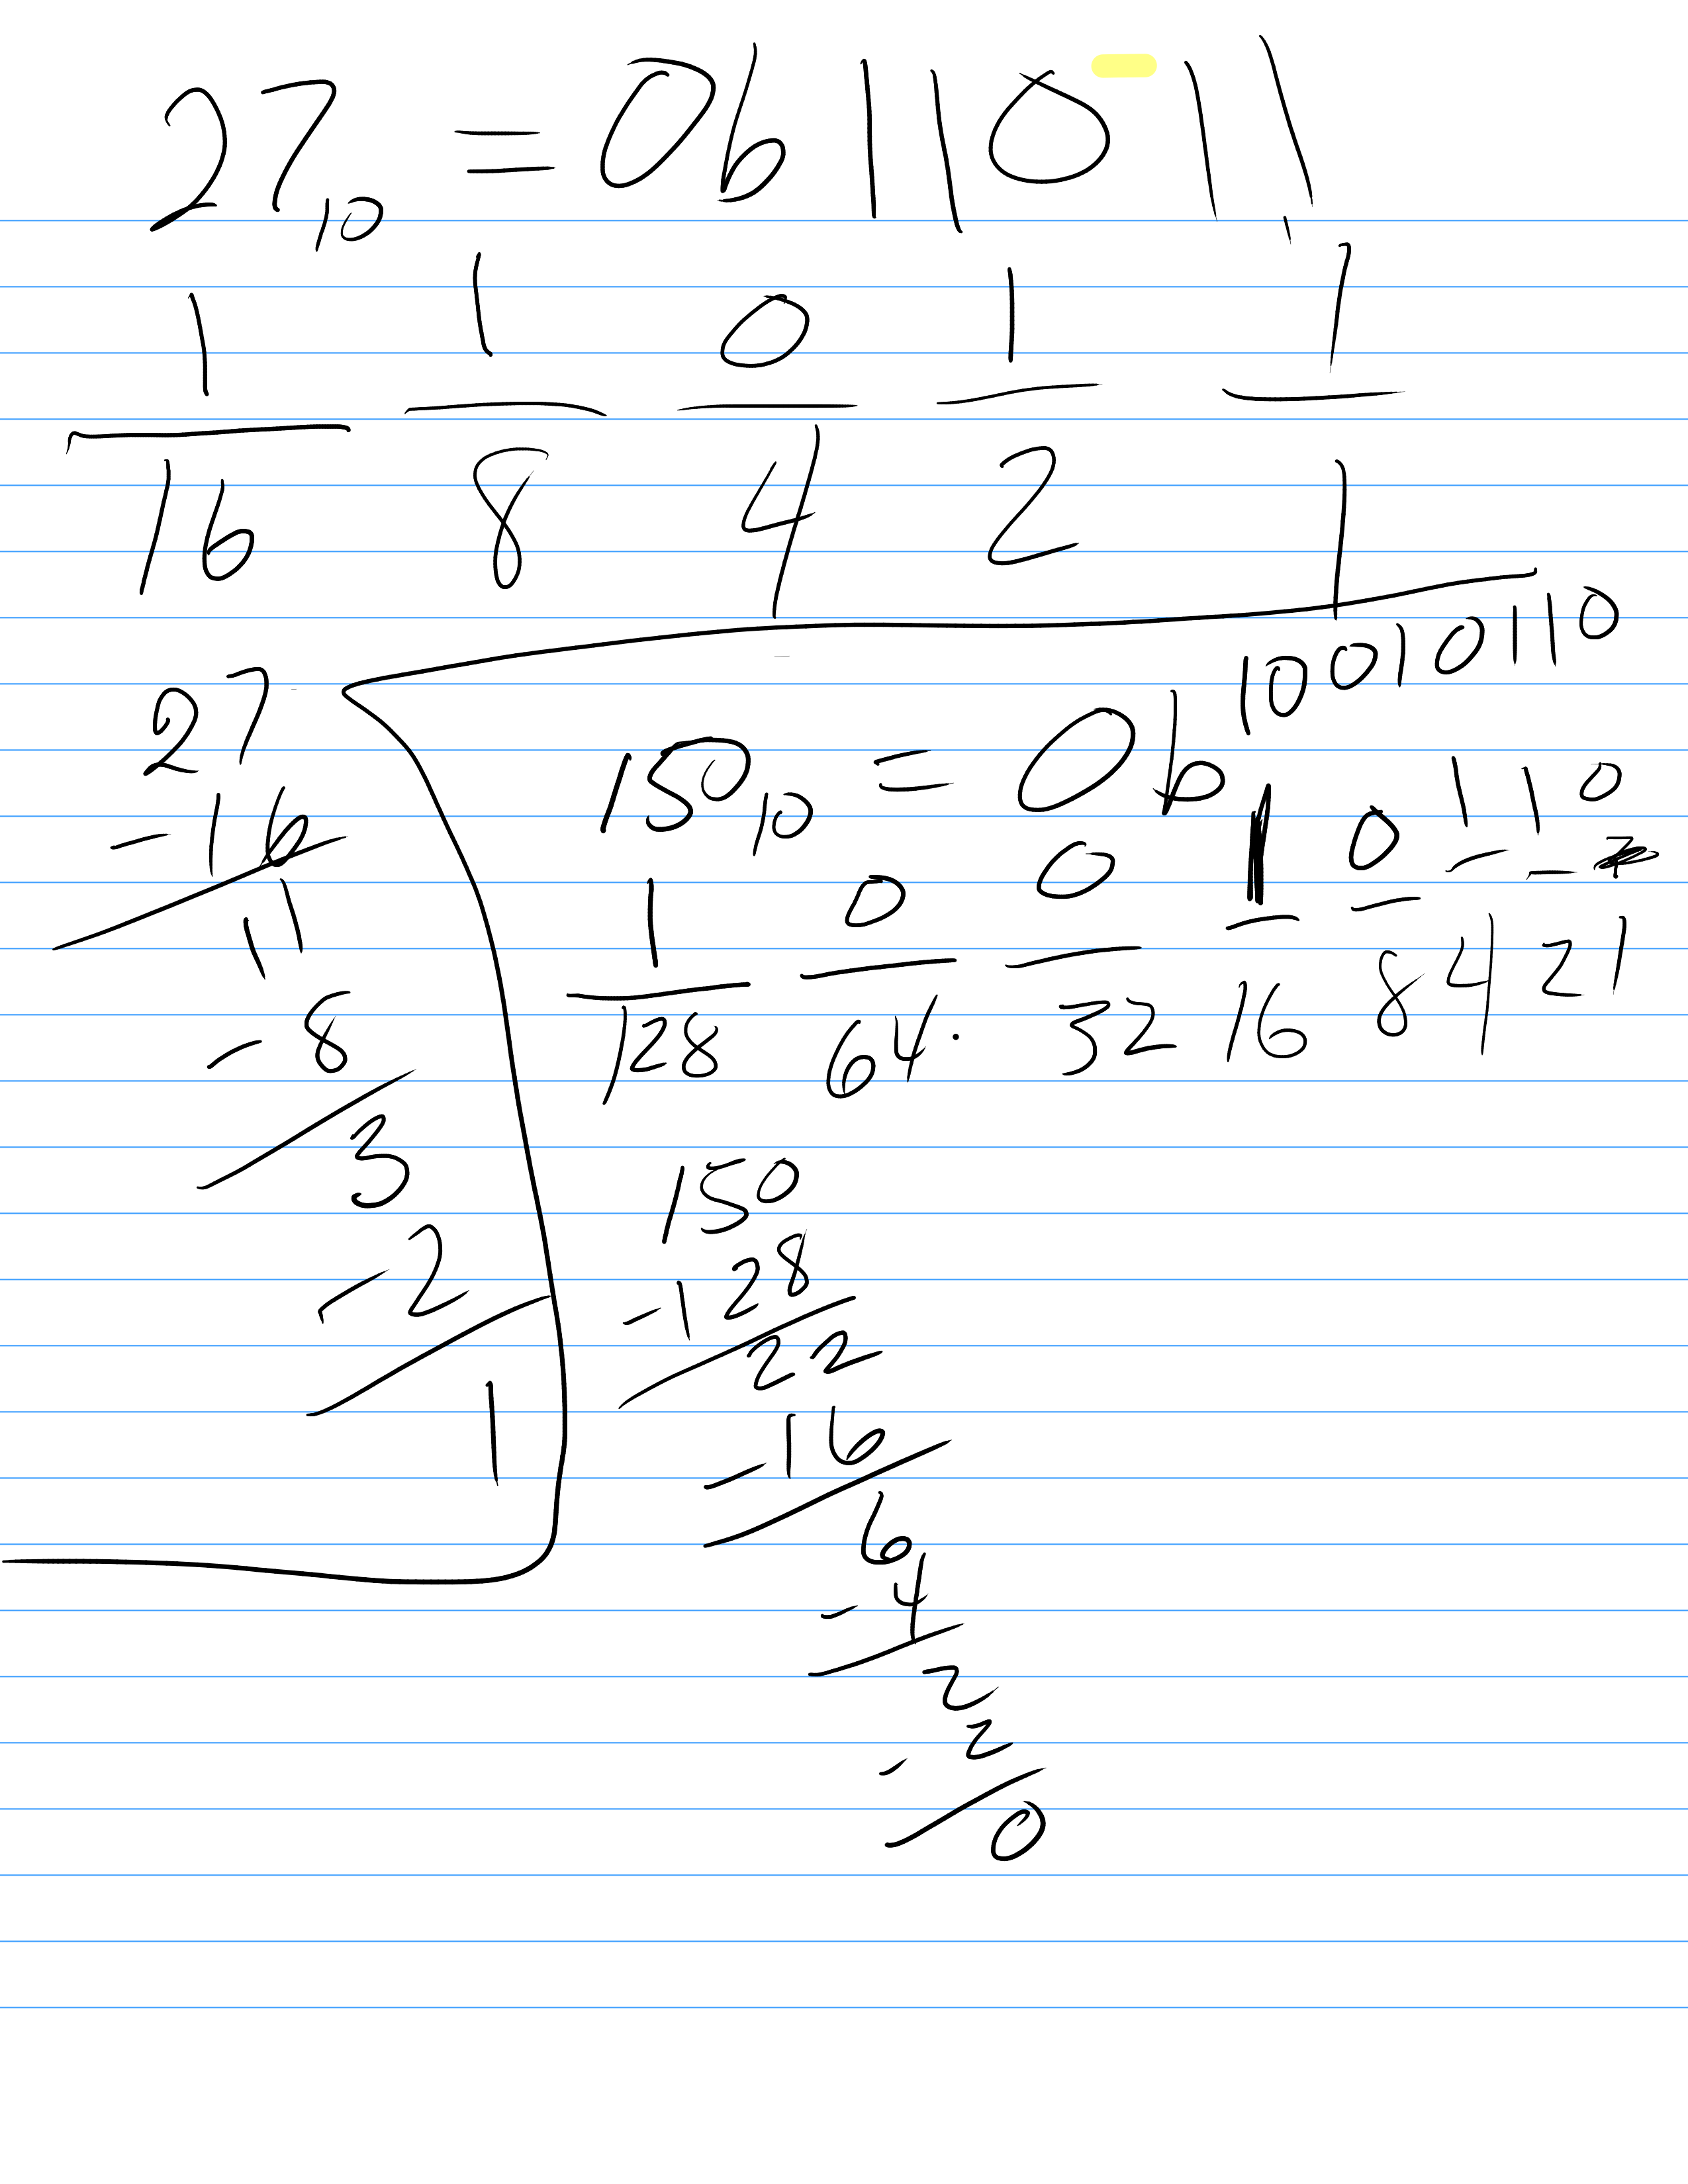 27₁₀ = 0b11011
1 1 0 1 1
16 8 4 2 1
27
-16
11
-8
3
-2
1
150₁₀ = 0b10010110
1 0 0 1 0 1 1 0
128 64 32 16 8 4 2 1
150
-128
22
-16
6
-4
2
-2
0